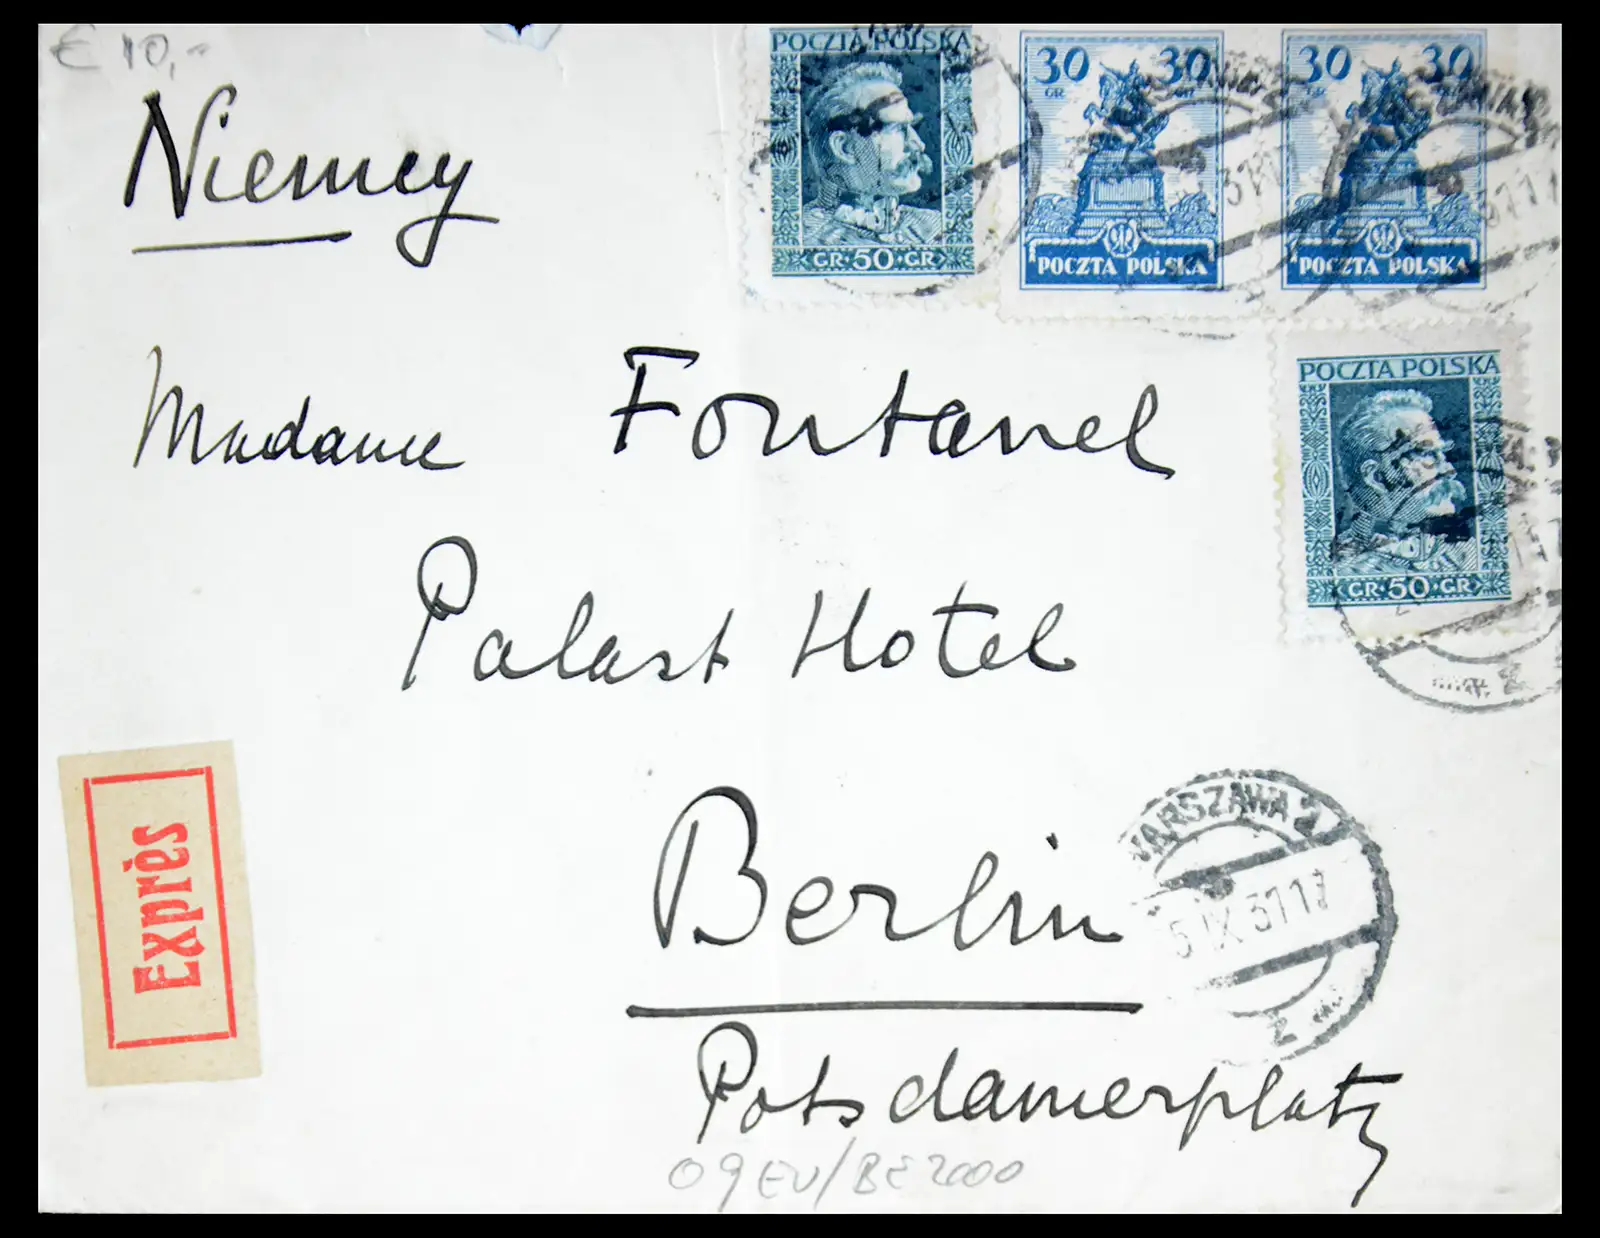 € 10,-
Niemcy
POCZTA POLSKA
GR·50·GR
30 30
GR GR
POCZTA POLSKA
30 30
GR
POCZTA POLSKA
Madame Fontanel
POCZTA POLSKA
GR·50·GR
Palast Hotel
Exprès
Berlin
WARSZAWA 2
5 IX 31 17
2
Potsdamerplatz
09EU/BE2000